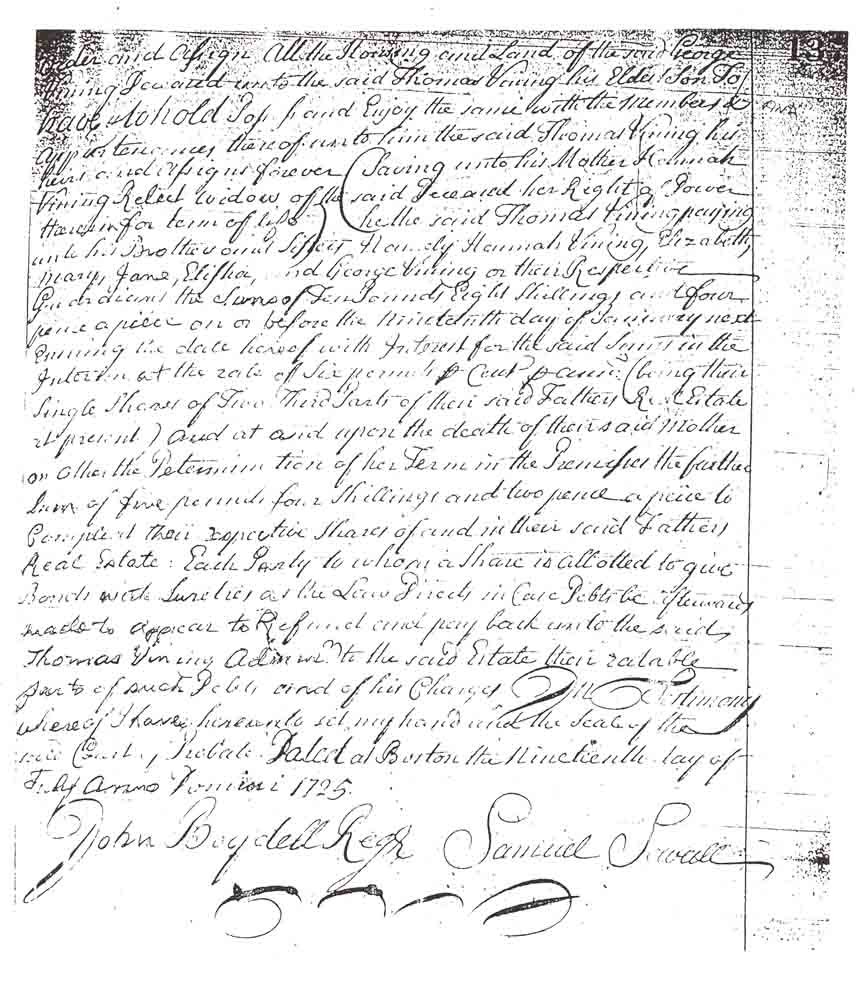 order and Assign All the Housing and Land of the said George
Vining Deceased unto the said Thomas Vining his Eldest Son To
have & to hold Possess and Enjoy the same with the members &
appurtenances thereof unto him the said Thomas Vining his
heirs and assigns forever (Saving unto his Mother Hannah
Vining Relict Widow of the said Deceased her Right & Power
therein for term of life) he the said Thomas Vining paying
unto his Brothers and Sisters Namely Hannah Vining, Elizabeth,
Mary, Jane, Elisha, and George Vining or their Respective
Guardians the Sums of Ten Pounds Eight Shillings and four
pence a piece on or before the Nineteenth day of January next
Ensuing the date hereof with Interest for the said Sums in the
Interim at the rate of Six pounds p Cent p annu: (being their
Single Shares of Two Third Parts of their said Fathers Real Estate
at present) And at and upon the death of their said Mother
or other the Determination of her Term in the Premisses the further
Sum of five pounds four Shillings and two pence a peice to
Compleat their respective Shares of and in their said Fathers
Real Estate: Each Party to whom a Share is allotted to give
Bonds with Sureties as the Law Directs in Case Debts be afterwards
made to appear to Refund and pay back unto the said
Thomas Vining Adminr. to the said Estate their ratable
parts of such Debts and of his Charges In Testimony
whereof I have hereunto set my hand and the Seale of the
said Court of Probate Dated at Boston the Nineteenth day of
July Anno Domini 1725.
John Boydell Regr Samuel Sewall